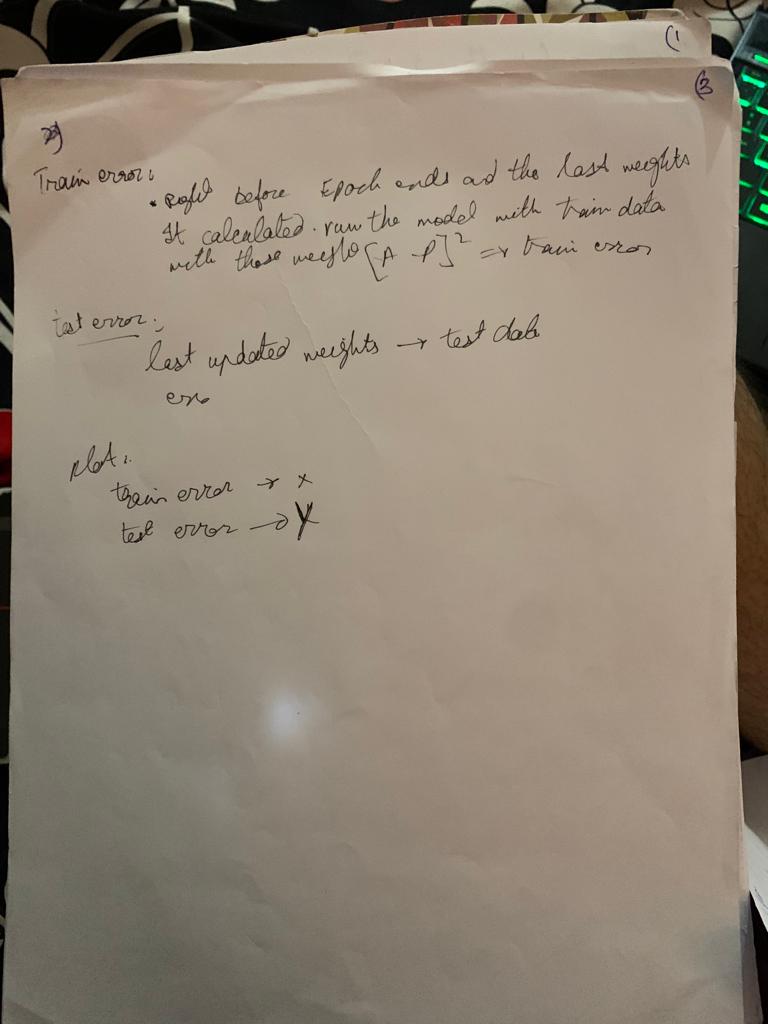 (1
(3
Train error:
• Right before Epoch ends and the last weights
It calculated. run the model with train data
with those weights [A - P]² => train error
test error:
last updated weights → test data
erro
plot:
train error → x
test error → Y